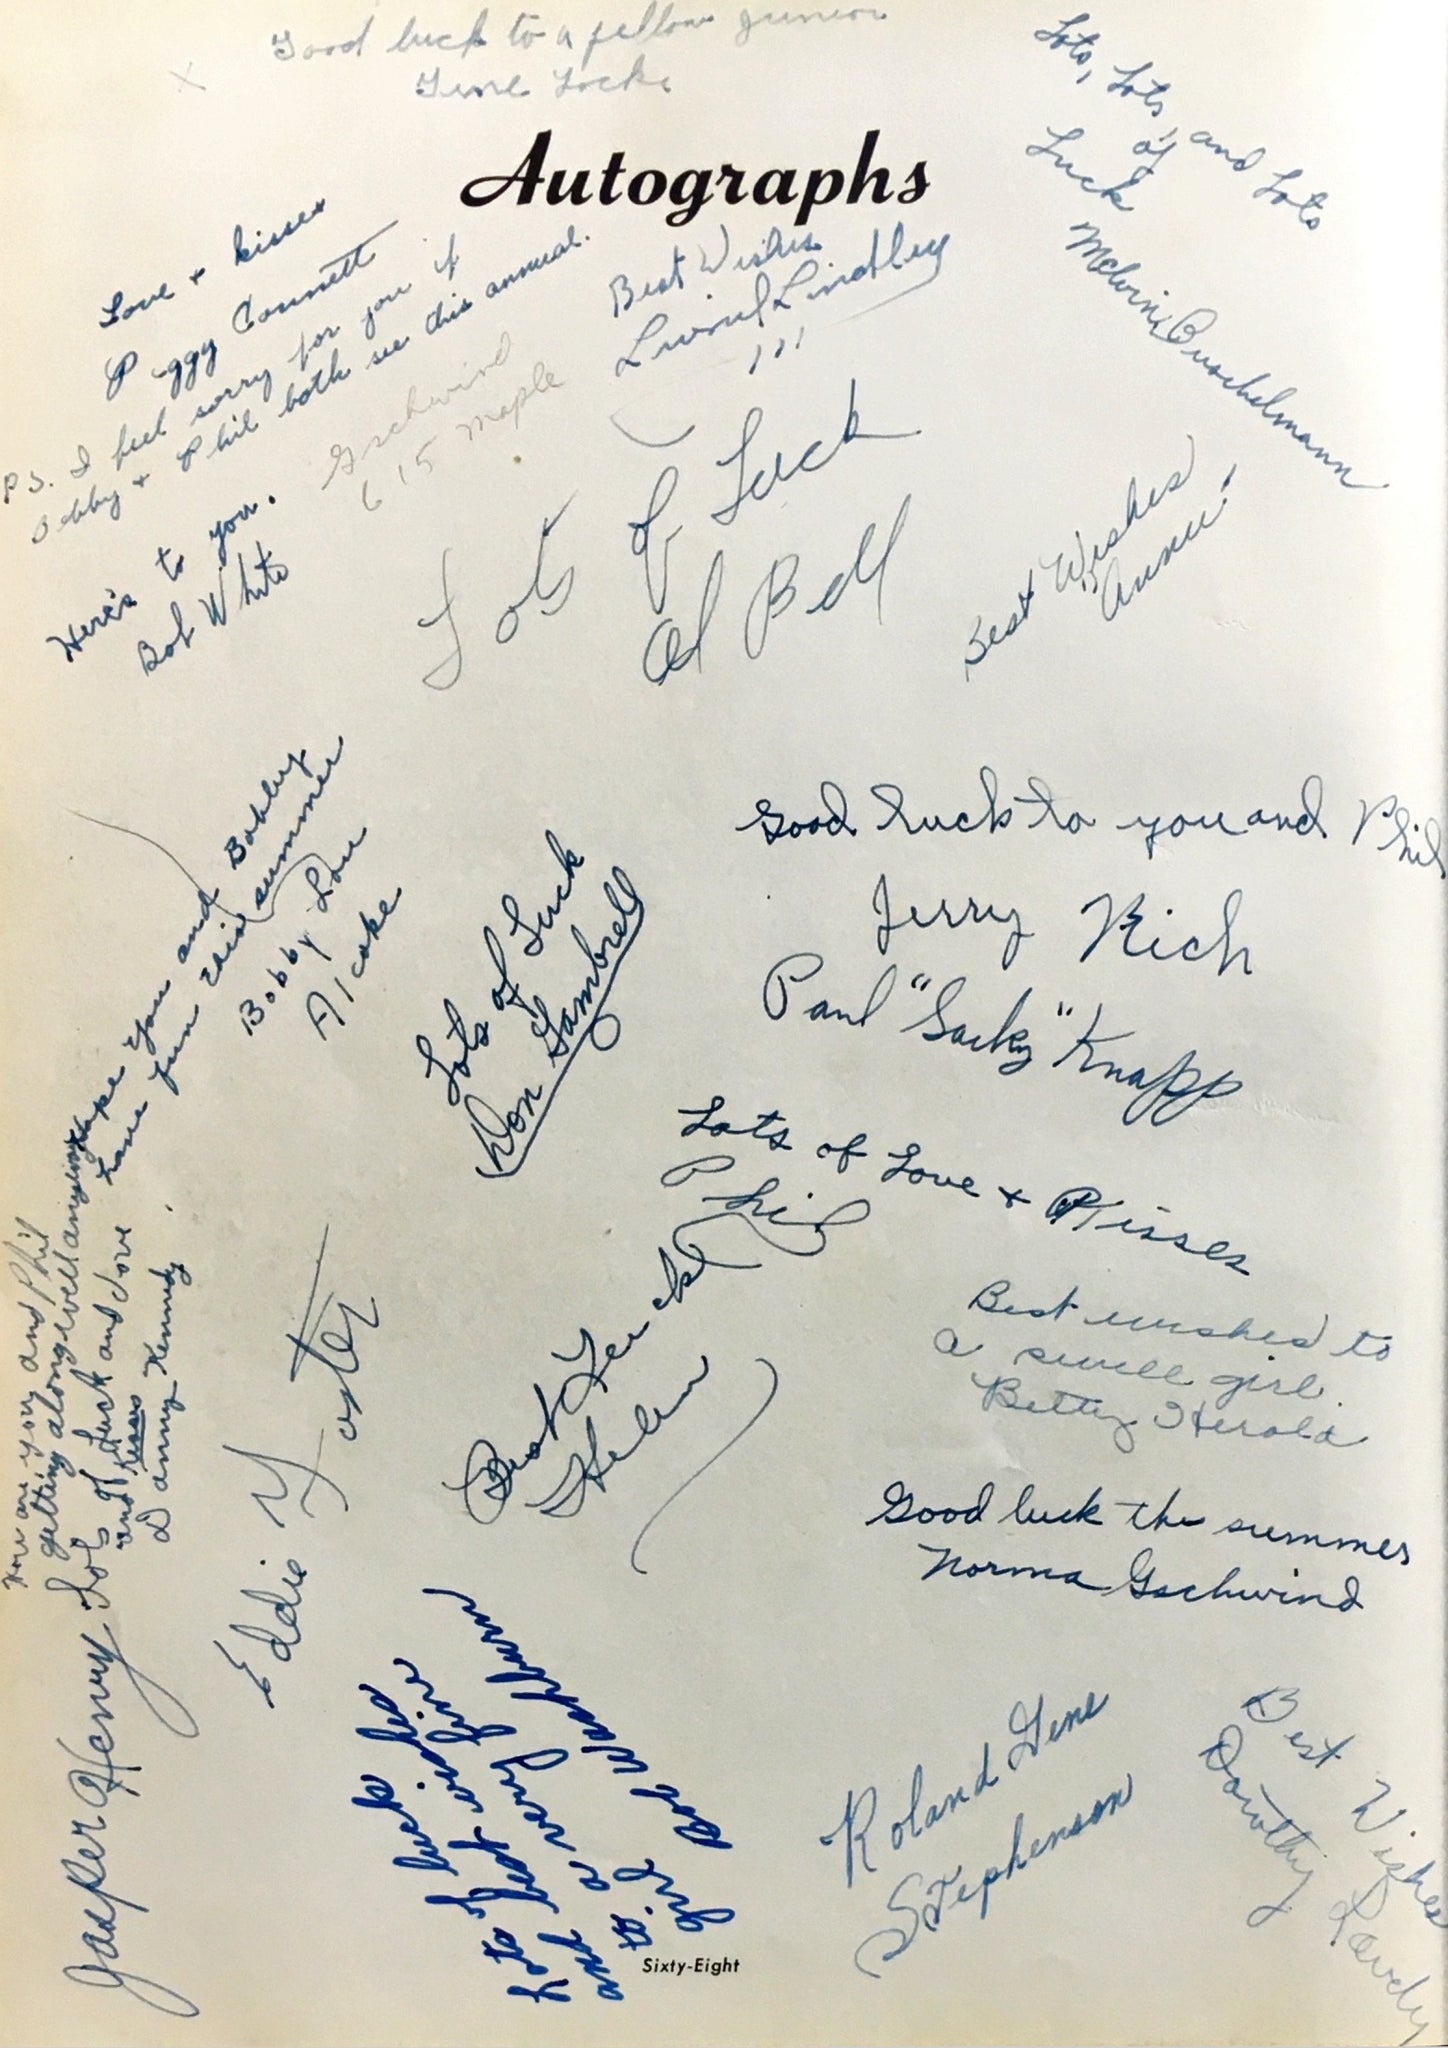 Good luck to a fellow junior
Gene Locke
Autographs
Lots, Lots, and Lots
of
Luck
Melvin Buschelmann
Love + kisses
Peggy Connett
P.S. I feel sorry for you if
+ Phil both see this annual.
Best Wishes
Lindley
Gschwind
615 Maple
Here's to you.
Bob White
Lots of Luck
Al Bell
Best Wishes
you and Bobby
have fun this summer
Bobby Lou
Alcoke
Lots of Luck
Don Gambrell
Good luck to you and Phil
Jerry Rich
Paul "Sacky" Knapp
Lots of Love + Kisses
Phil
How are you and Phil
getting along well anyway
Lots of Luck and Love
and kisses
Danny Kennedy
Jasper Henry
Eddie Yoster
Best Luck
Helen
Best wishes to
a swell girl.
Betty Herold
Good luck the summer
Norma Gschwind
Lots of luck
and best wishes
to a very fine
girl Bob Washburn
Roland Gene
Stephenson
Best Wishes
Dorothy
Sixty-Eight